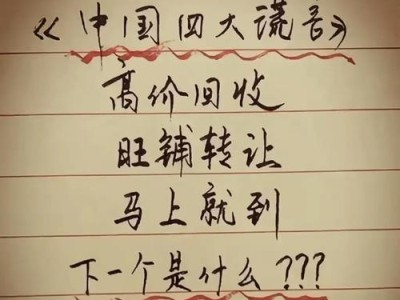 《中国四大谎言》
高价回收
旺铺转让
马上就到
下一个是什么???